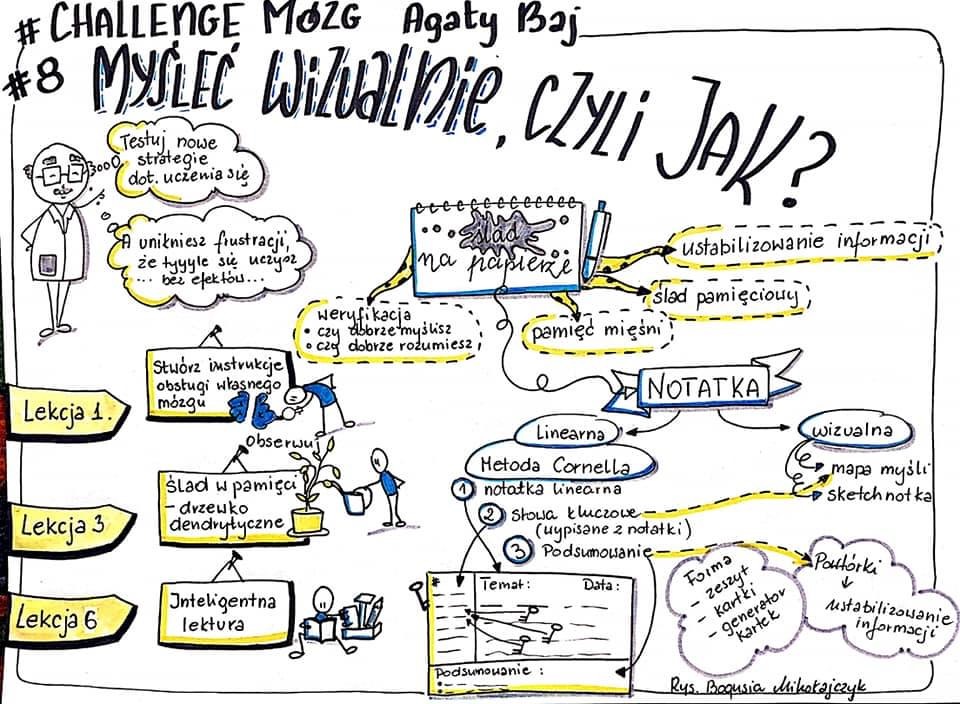 # CHALLENGE MÓZG Agaty Baj
#8 MYŚLEĆ WIZUALNIE, CZYLI JAK?
Testuj nowe
strategie
dot. uczenia się
A unikniesz frustracji,
że tyyyle się uczysz
... bez efektów...
ślad
na papierze
ustabilizowanie informacji
ślad pamięciowy
pamięć mięśni
weryfikacja
• czy dobrze myślisz
• czy dobrze rozumiesz
Lekcja 1.
Stwórz instrukcje
obsługi własnego
mózgu
Obserwuj
Lekcja 3
Ślad w pamięci
- drzewko
dendrytyczne
Lekcja 6
Inteligentna
lektura
NOTATKA
Linearna
Metoda Cornella
1 notatka linearna
2 Słowa kluczowe
(wypisane z notatki)
3 Podsumowanie
wizualna
mapa myśli
sketchnotka
# Temat: Data:
Podsumowanie:
Forma
- zeszyt
- kartki
- generator
kartek
Powtórki
ustabilizowanie
informacji
Rys. Bogusia Mikołajczyk